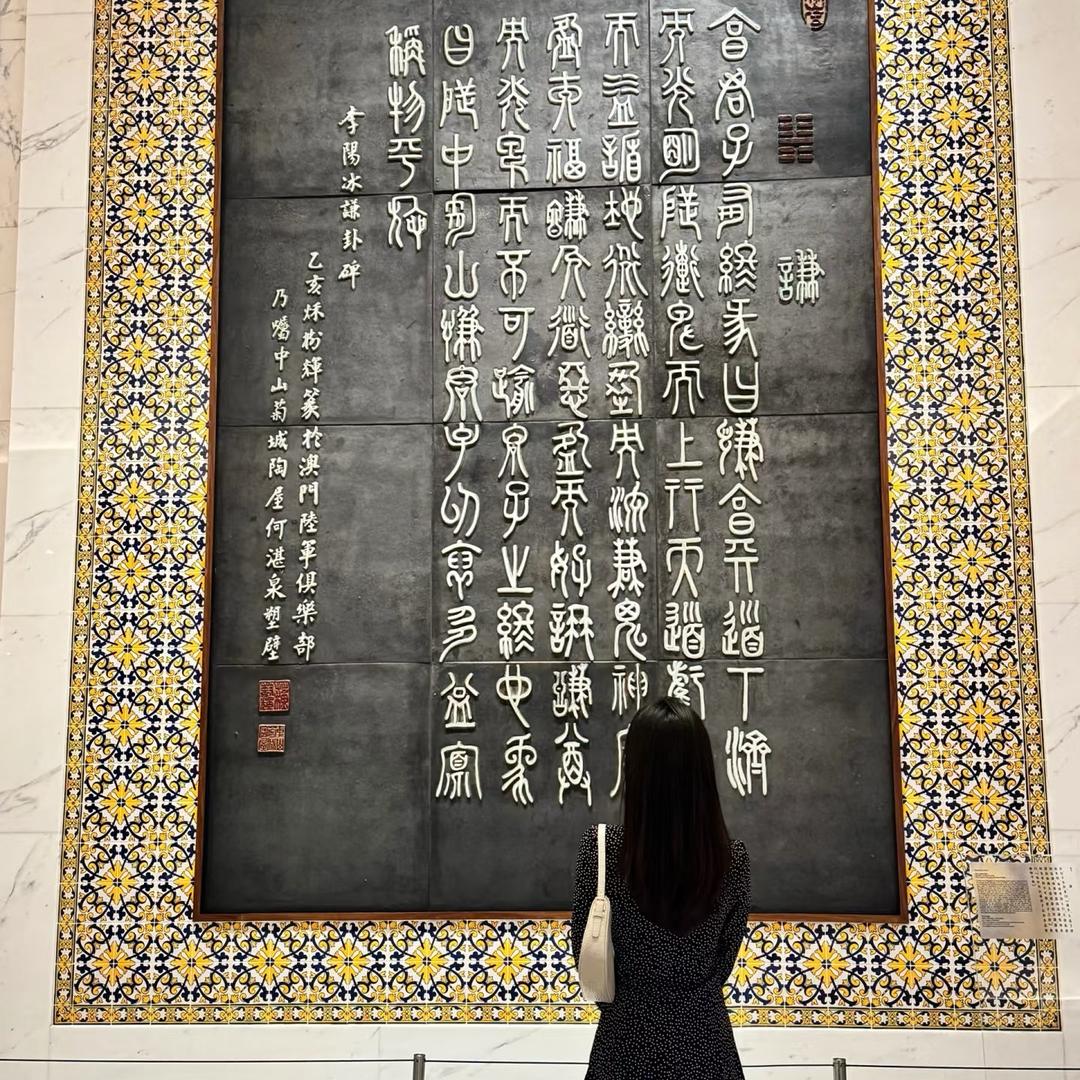 謙
亨君子有終彖曰謙亨天道下濟
而光明地道卑而上行天道虧
而益謙地道變盈而流謙鬼神
盈而福謙人道惡盈而好謙謙尊
而光卑而不可踰君子之終也象
曰地中有山謙君子以裒多益寡
稱物平施
李陽冰謙卦碑
乙亥秌樹輝篆於澳門陸軍俱樂部
乃囑中山菊城陶屋何湛泉塑壁